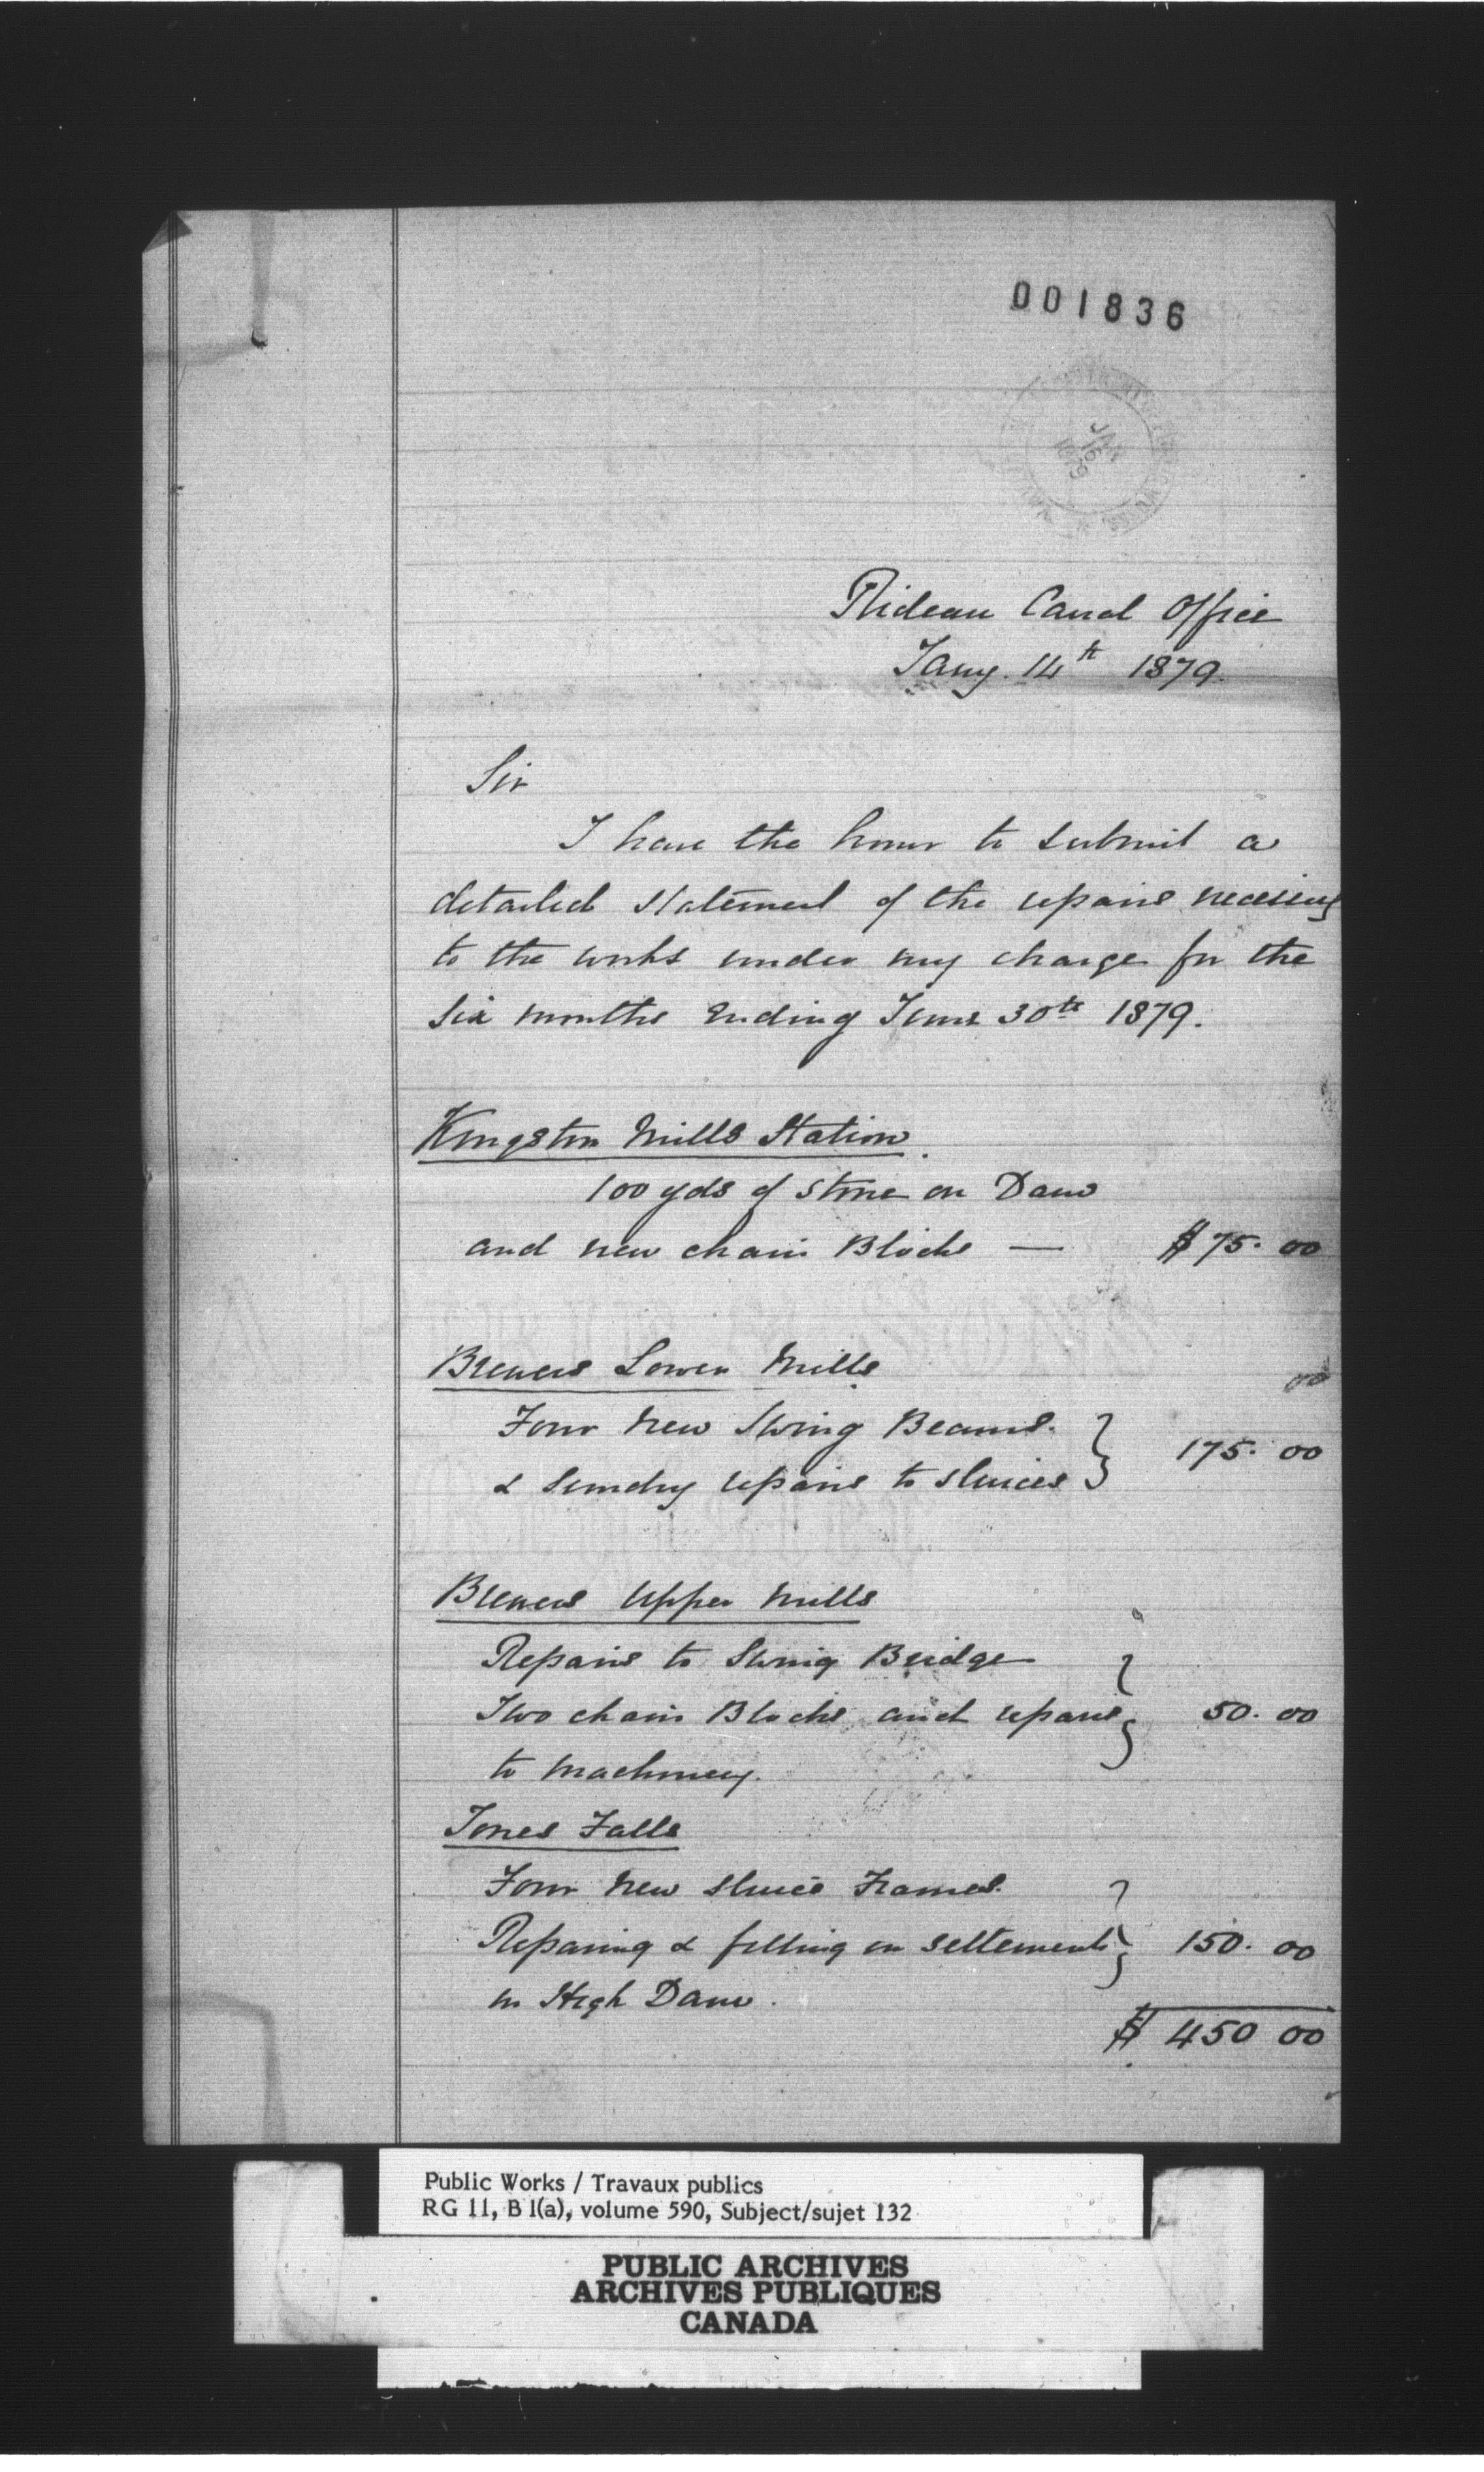 001836
JAN
16
1879
Rideau Canal Office
Jany. 14th 1879.
Sir
I have the honor to submit a
detailed statement of the repairs necessary
to the works under my charge for the
six months ending June 30th 1879.
Kingston Mills Station.
100 yds of stone on Dam
and new chain Blocks — $75.00
Brewers Lower Mills
00
Four New Swing Beams.
& sundry repairs to sluices } 175.00
Brewers Upper Mills
Repairs to Swing Bridge
Two chain Blocks and repairs } 50.00
to machinery.
Jones Falls
Four New Sluice Frames.
Repairing & filling in settlements } 150.00
in High Dam.
$ 450 00
Public Works / Travaux publics
RG 11, B 1(a), volume 590, Subject/sujet 132
PUBLIC ARCHIVES
ARCHIVES PUBLIQUES
CANADA